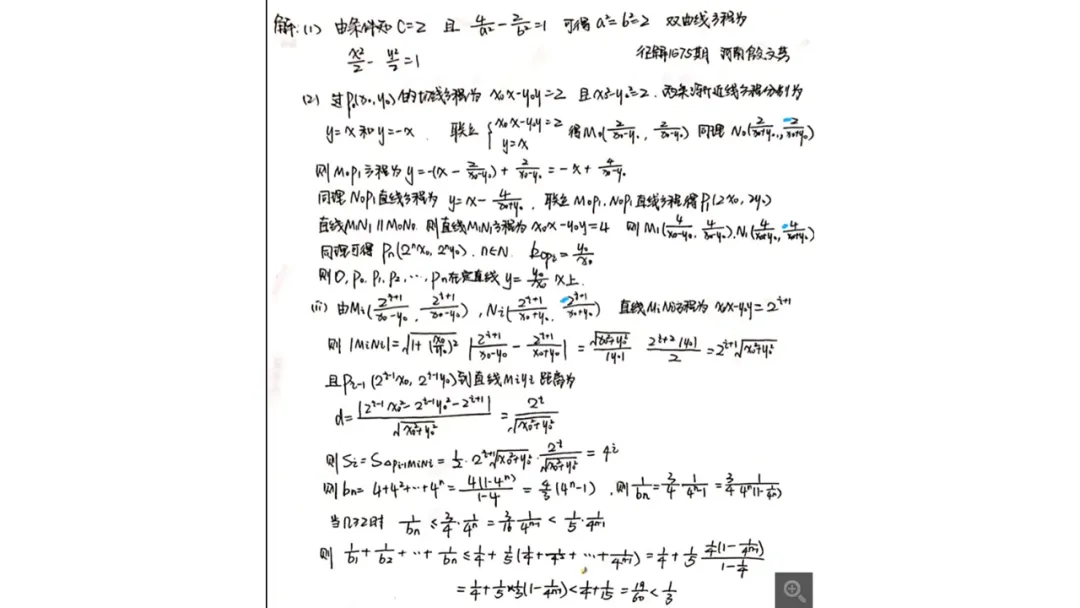 解:(1) 由条件知 C=2 且 4/a² - 2/b² =1 可得 a²=b²=2 双曲线方程为
x²/2 - y²/2 =1
征解1675期 河南段文英
(2) 过P₀(x₀,y₀)的切线方程为 x₀x-y₀y=2 且x₀²-y₀²=2. 两条渐近线方程分别为
y=x 和 y=-x. 联立 { x₀x-y₀y=2 y=x 得M₀(2/(x₀-y₀), 2/(x₀-y₀)) 同理 N₀(2/(x₀+y₀), -2/(x₀+y₀))
则M₀P₁方程为 y=-(x - 2/(x₀-y₀)) + 2/(x₀-y₀) = -x + 4/(x₀-y₀)
同理N₀P₁直线方程为 y=x- 4/(x₀+y₀). 联立M₀P₁, N₀P₁直线方程得P₁(2x₀, 2y₀)
直线M₁N₁ // M₀N₀. 则直线M₁N₁方程为 x₀x-y₀y=4 则 M₁(4/(x₀-y₀), 4/(x₀-y₀)), N₁(4/(x₀+y₀), -4/(x₀+y₀))
同理可得 Pn(2ⁿx₀, 2ⁿy₀). n∈N. kopᵢ= y₀/x₀
则O, P₀, P₁, P₂, …, Pn在定直线 y= y₀/x₀ x上.
(ii) 由Mᵢ(2^(i+1)/(x₀-y₀), 2^(i+1)/(x₀-y₀)), Nᵢ(2^(i+1)/(x₀+y₀), -2^(i+1)/(x₀+y₀)) 直线MᵢNᵢ方程为 x₀x-y₀y=2^(i+1)
则 |MᵢNᵢ|=√(1+(x₀/y₀)²) |2^(i+1)/(x₀-y₀) - 2^(i+1)/(x₀+y₀)| = √(x₀²+y₀²)/|y₀| 2^(i+2)|y₀|/2 = 2^(i+1)√(x₀²+y₀²)
且Pᵢ₋₁(2^(i-1)x₀, 2^(i-1)y₀)到直线MᵢYᵢ距离为
d= |2^(i-1)x₀²-2^(i-1)y₀²-2^(i+1)|/√(x₀²+y₀²) = 2^i/√(x₀²+y₀²)
则Sᵢ=S△Pᵢ₋₁MᵢNᵢ = 1/2·2^(i+1)√(x₀²+y₀²)· 2^i/√(x₀²+y₀²) = 4^i
则 bn= 4+4²+…+4ⁿ = 4(1-4ⁿ)/(1-4) = 4/3(4ⁿ-1). 则 1/bn = 3/4 1/(4ⁿ-1) = 3/4 1/(4ⁿ(1-1/4ⁿ))
当n≥2时 1/bn ≤ 3/4·1/4ⁿ = 3/16 1/4^(n-1) < 1/5·1/4^(n-1)
则 1/b₁ + 1/b₂ + … + 1/bn ≤ 1/4 + 1/5(1/4 + 1/4² + … + 1/4^(n-1)) = 1/4 + 1/5 1/4(1-1/4^(n-1))/(1-1/4)
= 1/4 + 1/5×1/3(1-1/4^(n-1)) < 1/4 + 1/15 = 19/60 < 1/3